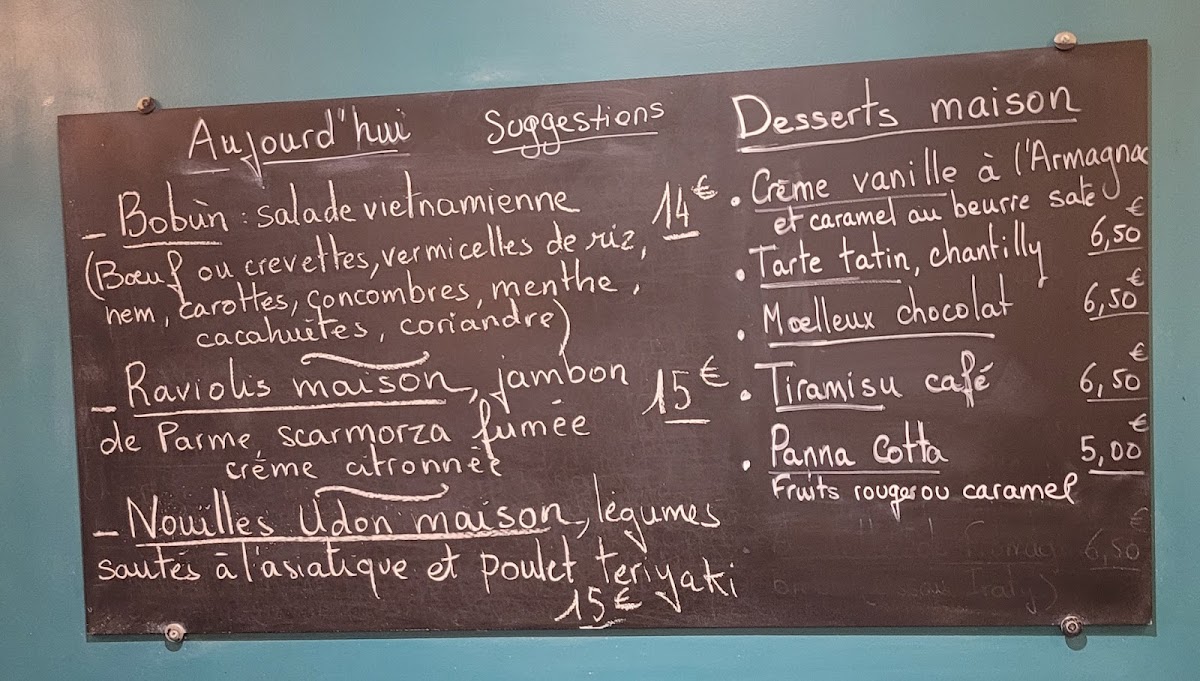 Aujourd'hui Suggestions
- Bobùn : salade vietnamienne 14€
(Bœuf ou crevettes, vermicelles de riz,
nem, carottes, concombres, menthe,
cacahuètes, coriandre)
- Raviolis maison, jambon 15€
de Parme, scarmorza fumée
crème citronnée
- Nouilles Udon maison, légumes
sautés à l'asiatique et poulet teriyaki
15€
Desserts maison
• Crème vanille à l'Armagnac
et caramel au beurre salé
6,50€
• Tarte tatin, chantilly
6,50€
• Moelleux chocolat
• Tiramisu café 6,50€
• Panna Cotta 5,00€
Fruits rouges ou caramel
6,50